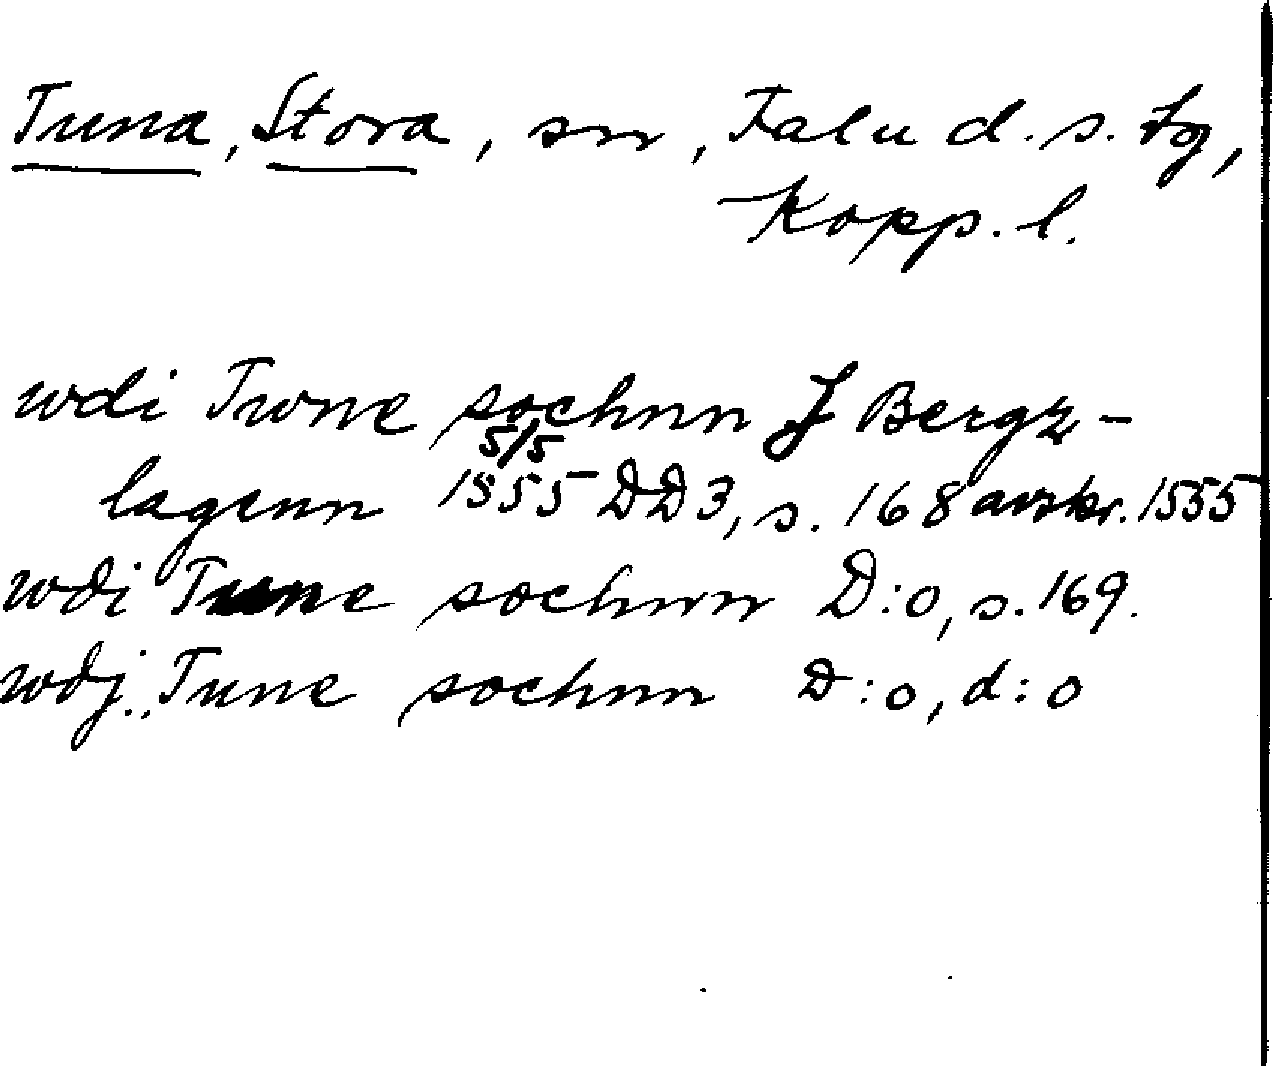 Tuna, Stora, sn, Falu d. s. fg,
Kopp. l.
wdi Twne sochnn J Bergz-
5/5
lagenn 1555 DD3, s. 168 avskr. 1555
wdi Tune sochnn D:o, s. 169.
wdj Tune sochnn D:o, d:o